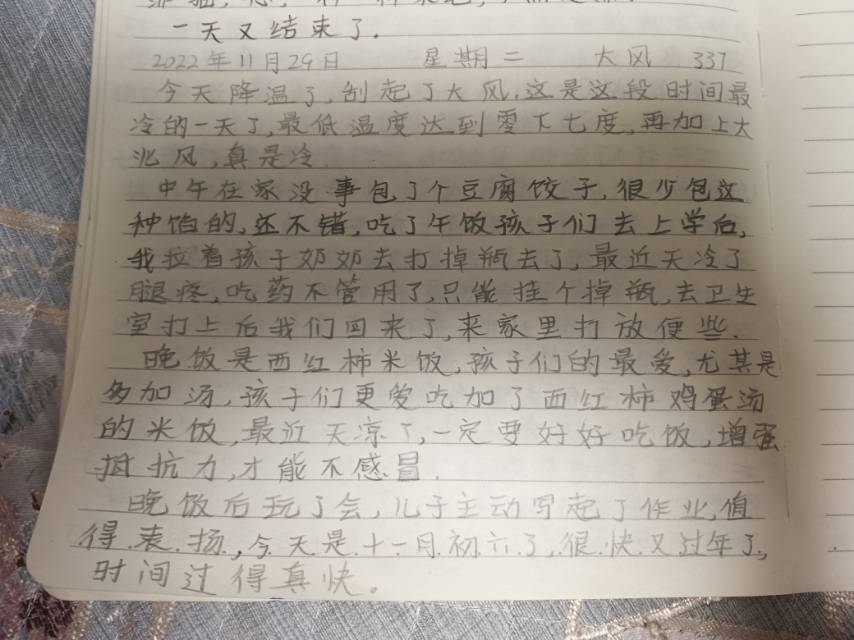 一天又结束了.
2022年11月29日 星期二 大风 337
今天降温了,刮起了大风.这是这段时间最
冷的一天了,最低温度达到零下七度,再加上大
北风,真是冷.
中午在家没事包了个豆腐饺子,很少包这
种馅的,还不错,吃了午饭孩子们去上学后,
我拉着孩子奶奶去打掉瓶去了,最近天冷了
腿疼,吃药不管用了,只能挂个掉瓶,去卫生
室打上后我们回来了,来家里打放便些.
晚饭是西红柿米饭,孩子们的最爱,尤其是
多加汤,孩子们更爱吃加了西红柿鸡蛋汤
的米饭,最近天凉了,一定要好好吃饭,增强
抵抗力,才能不感冒.
晚饭后玩了会,儿子主动写起了作业,值
得表扬,今天是十一月初六了,很快又过年了,
时间过得真快。